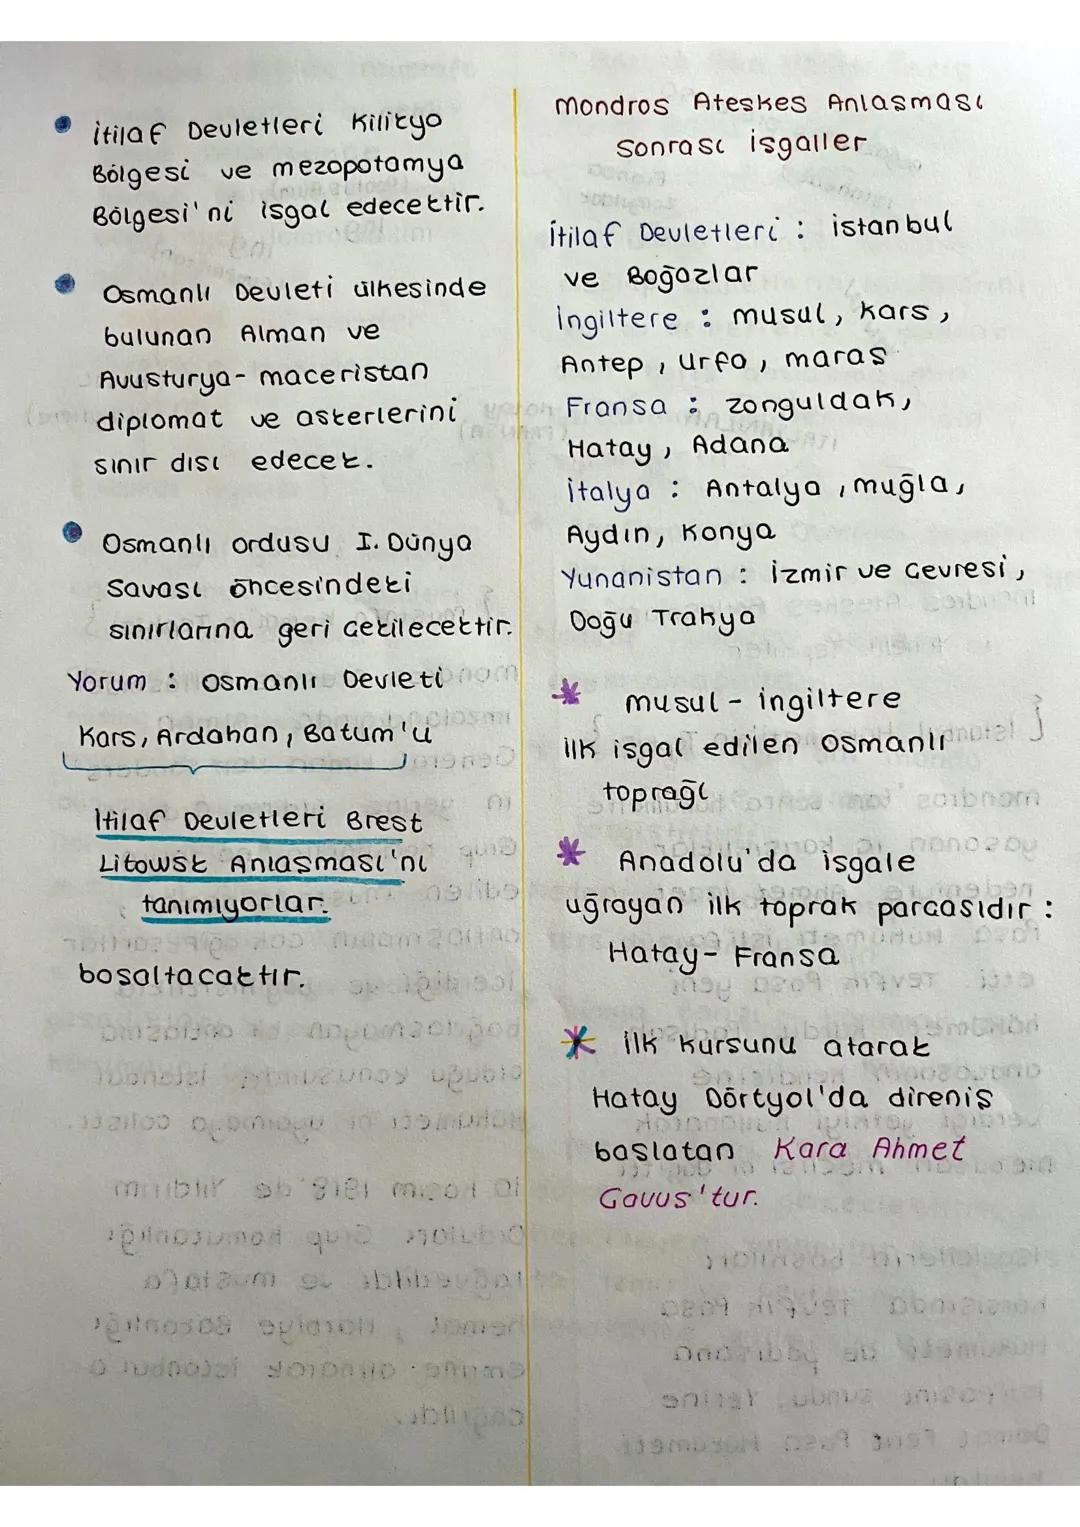 itilaf Devletleri Kilikya
Bölgesi ve mezopotamya
Bölgesi'ni isgal edecektir.
Osmanlı Devleti ülkesinde
bulunan Alman ve
Avusturya- maceristan
diplomat ve askerlerini
sınır dısı edecek.
Osmanlı ordusu I. Dünya
Savası öncesindeki
sınırlarına geri cekilecektir.
Yorum : Osmanlı Devleti
Kars, Ardahan, Batum'u
İtilaf Devletleri Brest
Litowsk Anlasması'nı
tanımıyorlar.
bosaltacaktır.
mondros Ateskes Anlasması
Sonrası isgaller
itilaf Devletleri : istanbul
ve Boğazlar
ingiltere : musul, Kars,
Antep, Urfa, maras
Fransa : zonguldak,
Hatay, Adana
italya : Antalya, muğla,
Aydın, Konya
Yunanistan : izmir ve cevresi,
Doğu Trakya
* musul - ingiltere
ilk isgal edilen osmanlı
toprağı
* Anadolu'da isgale
uğrayan ilk toprak parcasıdır :
Hatay- Fransa
* ilk kursunu atarak
Hatay Dörtyol'da direnis
baslatan Kara Ahmet
Cavus'tur.